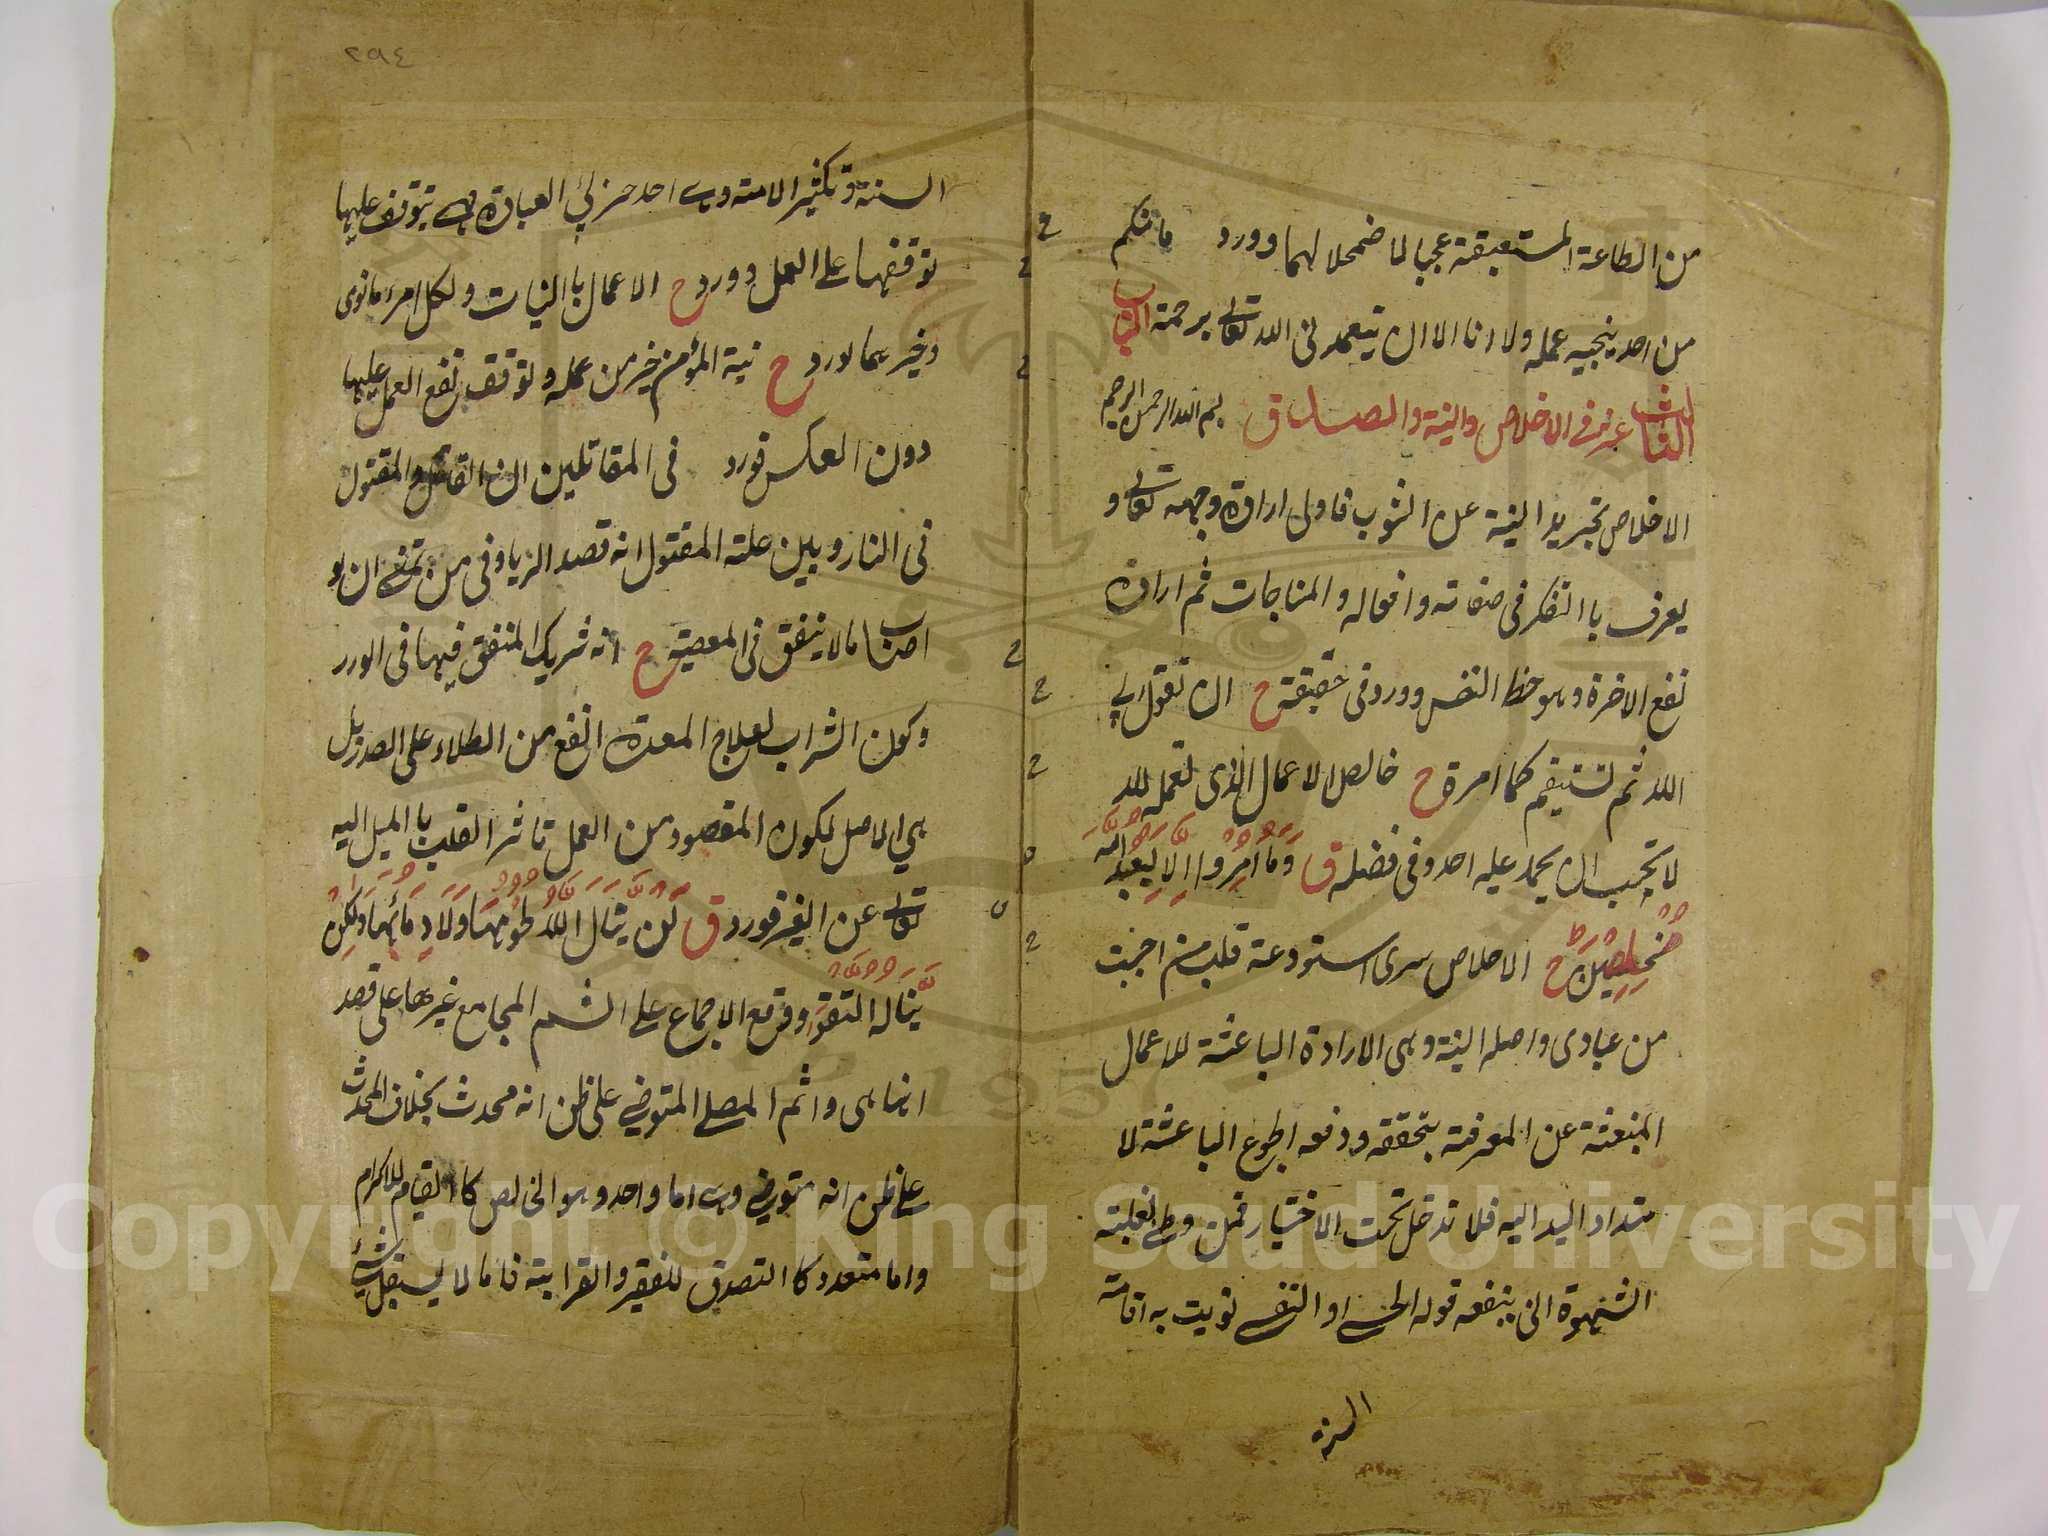 من الطاعة المستعبقة عجبا لما ضمحلا لهما وورد ما منكم
من احد ينجيه عمله ولا انا الا ان يتغمدنى الله تعالى برحمة الباب
الثالث عشر فى الاخلاص والنية والصدق بسم الله الرحمن الرحيم
الاخلاص تجريد النية عن الشوب فاولى ارادة وجهه تعالى و
يعرف با التفكر فى صفاته وافعاله و المناجات ثم ارادة
نفع الاخرة وهو حظ النفس وورد فى حقيقة ح ان تقول ربى
الله ثم تستقيم كما امرة ح خالص الاعمال الذى تعمله لله
لا تحب ان يحمد عليه احد وفى فضله ق وَمَا اُمِرُوا اِلَّا لِيَعْبُدُ اللّهَ
مُخْلِصِيْنَ ح الاخلاص سرى استودعة قلب من احببت
من عبادى واصله النية وهى الارادة الباعثة للاعمال
المنبعثة عن المعرفة بتحققه ودفعه الجوع الباعثة لا
متداد اليد اليه فلا تدخل تحت الاختيار فمن وطى لغلبته
الشهوة انى ينفعه قوله الحسى او النفسى نويت به اقامة
السنة
٢٩٤
السنة وتكثير الامته وهى احد جزئى العبادة فهى يتوقف عليها
توقفها على العمل وورد ح الاعمال با النيات ولكل امرء ما نوى
وخيرهما لورود ح نية المؤمن خير من عمله ولتوقف نفع العمل عليها
دون العكس فورد فى المقاتلين ان القاتل والمقتول
فى النار وبين علته المقتول انه قصد الزيا وفى من تمنى ان لو
اصاب مالا ينفق فى المعصية ح انه شريك المنفق فيها فى الوزر
وكون الشراب لعلاج المعدة انفع من الطلاء على الصدر بل
هى الاصل لكون المقصود من العمل تاثر القلب با الميل اليه
تعالى عن الغير فورد ق لَنْ يَنَالَ اللّهَ لُحُوْمُهَا وَلَا دِمَائُهَا وَلكِنْ
يَّنَالُه التَّقْوَى وقع الاجماع على اثم المجامع غيرها على قصد
انها هى واثم المصلى المتوضى على ظن انه محدث بخلاف المحدث
على ظن انه متوضى وهى اما واحد وهو الخالص كا القيام للاكرام
واما متعدد كا التصدق للفقير والقرابة فاما لا يستقل شئ
Copyright © King Saud University
1957